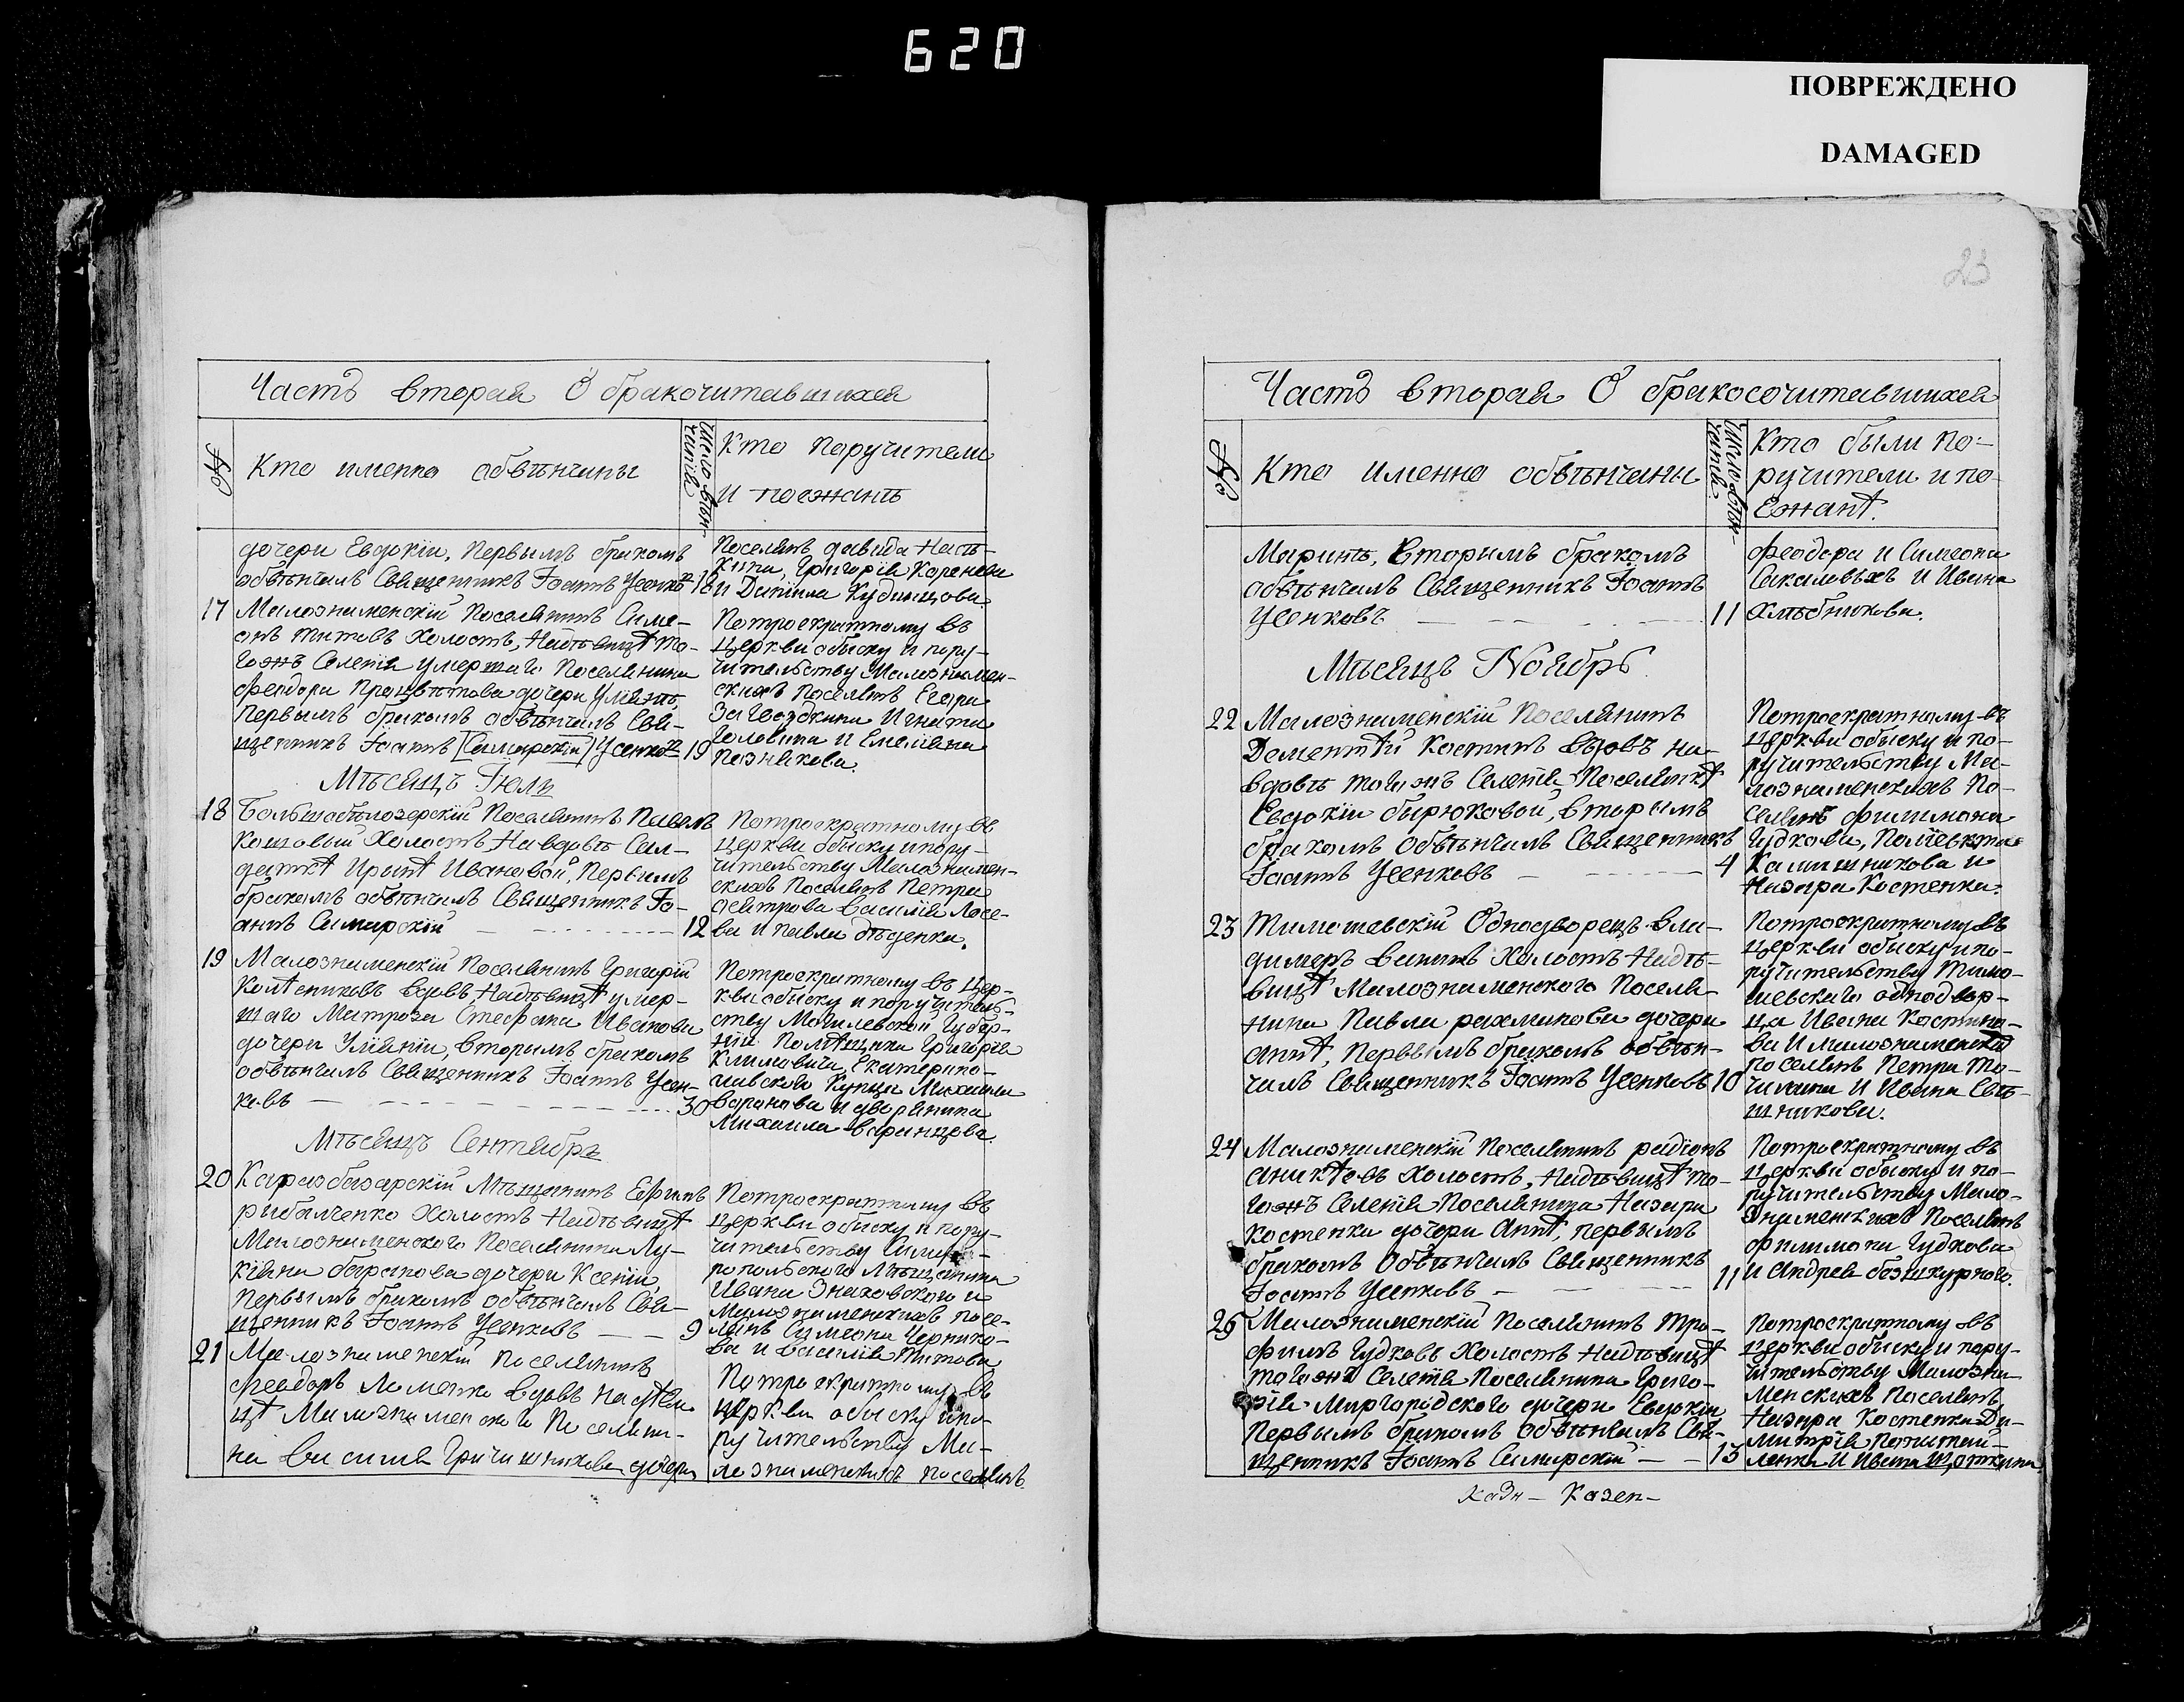 620
ПОВРЕЖДЕНО
DAMAGED
23
Часть вторая О бракочитавшихся
№
Кто именно обвѣнчаны
Число вѣн-
чанія
Кто поручители
и поезжанѣ
дочери Евдокіи, первымъ бракомъ
обвѣнчалъ Священникъ Іоаннъ Усенковъ 18
Поселянъ Давида Насѣ-
кина, Григорія Коренева
и Даніила Кудинцова.
17 Малознаменскій Поселянинъ Симе-
онъ Титовъ Холостъ, На дѣвицѣ то-
гожъ Селенія умершаго Поселянина
Феодора Процвѣтова дочери Уліянѣ,
Первымъ бракомъ обвѣнчалъ Свя-
щенникъ Іоаннъ [Самарскій] Усенковъ 19
По троекратному въ
церкви обыску и пору-
чительству Малознамен-
скихъ поселянъ Егора
Загвоздкина Игната
Головина и Емеліяна
познякова.
Мѣсяцъ Іюль
18 Большебѣлозерскій Поселянинъ Павелъ
Кошовый Холостъ, На вдовѣ Сал-
даткѣ Иринѣ Ивановой, Первымъ
бракомъ обвѣнчалъ Священникъ Іо-
аннъ Самарскій 12
По троекратному въ
церкви обыску и пору-
чительству Малознамен-
скихъ Поселянъ Петра
Дентрова Василія Лосе-
ва и павла дѣденка.
19 Малознаменскій Поселянинъ Григорій
Колѣсниковъ вдовъ, На дѣвицѣ умер-
шаго Матроза Стефана Иванова
дочери Уліяніи, вторымъ бракомъ
обвѣнчалъ Священникъ Іоаннъ Усен-
ковъ 30
По троекратному въ Цер-
кви обыску и поручитель-
ству Могилевской Губер-
ніи Помѣщика Григорія
Климовича, Екатерино-
славского Купца Михаила
Воронова и дворянина
Михаила Варинцева.
Мѣсяцъ Сентябрь
20 Каразбазарскій Мѣщанинъ Ефимъ
рибалченко Холостъ На дѣвицѣ
Малознаменского Поселянина Лу-
кіяна баранова дочери Ксеніи,
Первымъ бракомъ обвѣнчалъ Свя-
щенникъ Іоаннъ Усенковъ 9
По троекратному въ
Церкви обыску и пору-
чительству Симфе-
ропольского Мѣщанина
Ивана Знаковского и
Малознаменскихъ посе-
лянъ Симеона Чернико-
ва и Василія Титова
21 Малознаменскій поселянинъ
Феодоръ Ломенко вдовъ на дѣви-
цѣ Малознаменского Поселяни-
на Василія Гричишникова дочери
По троекратному въ
церкви обыску и по-
ручительству Ма-
лознаменскихъ поселянъ.
Часть вторая О бракосочитавшихся
№
Кто именно обвѣнчаны
Число вѣн-
чанія
Кто были по-
ручители и по-
езжанѣ.
Маринѣ, вторымъ бракомъ
обвѣнчалъ Священникъ Іоаннъ
Усенковъ 11
Феодора и Симеона
Сакаловыхъ и Ивана
Хлѣбникова.
Мѣсяцъ Ноябрь
22 Малознаменскій Поселянинъ
Дементѣй Костинъ вдовъ на
вдовѣ тогожъ Селенія Поселянкѣ
Евдокіи бирюковой, вторымъ
бракомъ обвѣнчалъ Священникъ
Іоаннъ Усенковъ 4
По троекратному въ
церкви обыску и по-
ручительству Ма-
лознаменскихъ По-
селянъ Филимона
Гудкова, Полѣекта
Калашникова и
Назара Костенка.
23 Тимошевскій Однодворецъ Вла-
димеръ Ванинъ Холостъ На дѣ-
вицѣ Малознаменского Поселя-
нина Павла рахманова дочери
Аннѣ, Первымъ бракомъ обвѣн-
чалъ Священникъ Іоаннъ Усенковъ 10
По троекратному въ
церкви обыску и по-
ручительству Тимо-
шевского однодвор-
ца Ивана Костино-
ва и малознаменской
поселянъ Петра То-
чилина и Ивана Свѣ-
шникова.
24 Малознаменскій Поселянинъ радіонъ
Аникѣевъ Холостъ, На дѣвицѣ то-
гожъ Селенія Поселянина Назара
Костенка дочери Аннѣ, первымъ
бракомъ Обвѣнчалъ Священникъ
Іоаннъ Усенковъ 11
По троекратному въ
Церкви обыску и по-
ручительству Мало-
знаменскихъ Поселянъ
Филимона Гудкова
и Андрея безчкурного.
25 Малознаменскій Поселянинъ Тро-
фимъ Гудковъ Холостъ На дѣвицѣ
тогожъ Селенія Поселянина Григо-
рія Миргородского дочери Евдокіи
Первымъ бракомъ обвѣнчалъ Свя-
щенникъ Іоаннъ Самарскій 13
По троекратному въ
Церкви обыску и пору-
чительству Малозна-
менскихъ Поселянъ
Назара Костенка Ди-
митрія Попитай-
ленка и Ивана Щоткина
Казен-